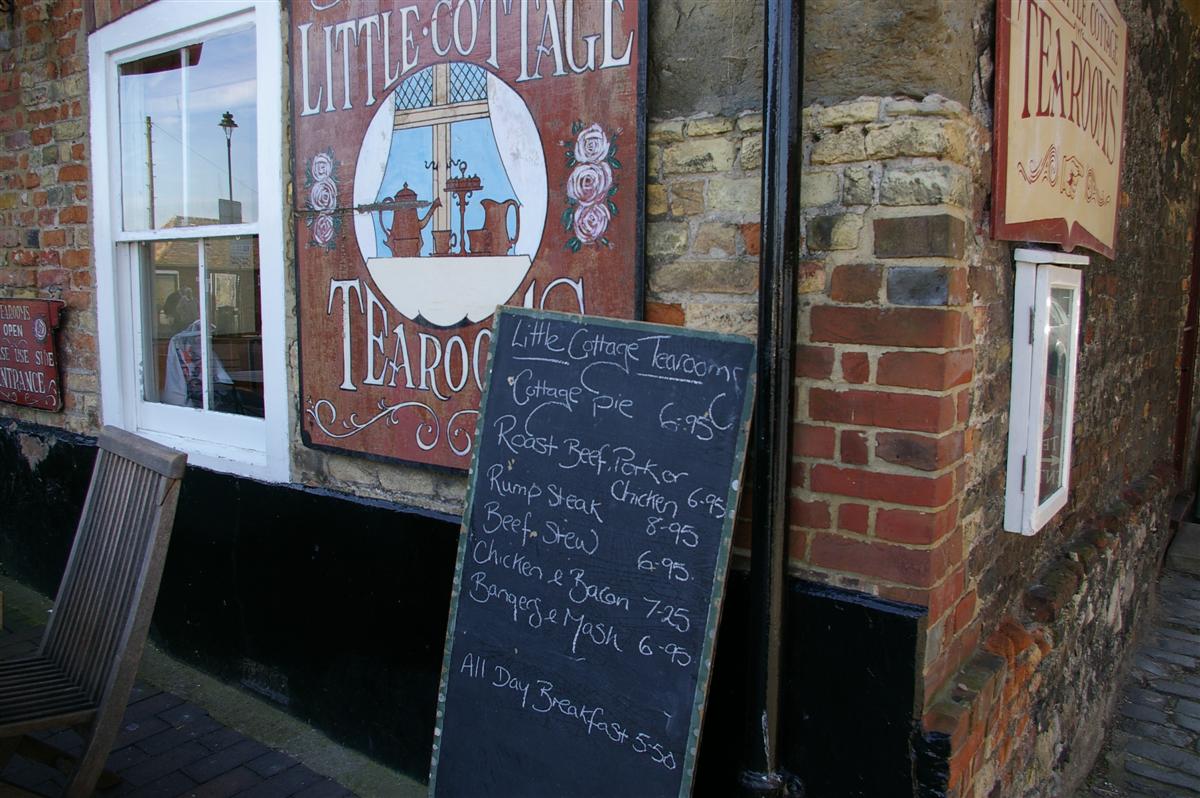 LITTLE·COTTAGE
TEAROOMS
TEAROOMS
OPEN
USE SIDE
ENTRANCE
Little Cottage Tearooms
Cottage Pie 6-95
Roast Beef, Pork or
Chicken 6-95
Rump Steak 8-95
Beef Stew 6-95
Chicken & Bacon 7-25
Bangers & Mash 6-95
All Day Breakfast 5-50
COTTAGE
TEA·ROOMS